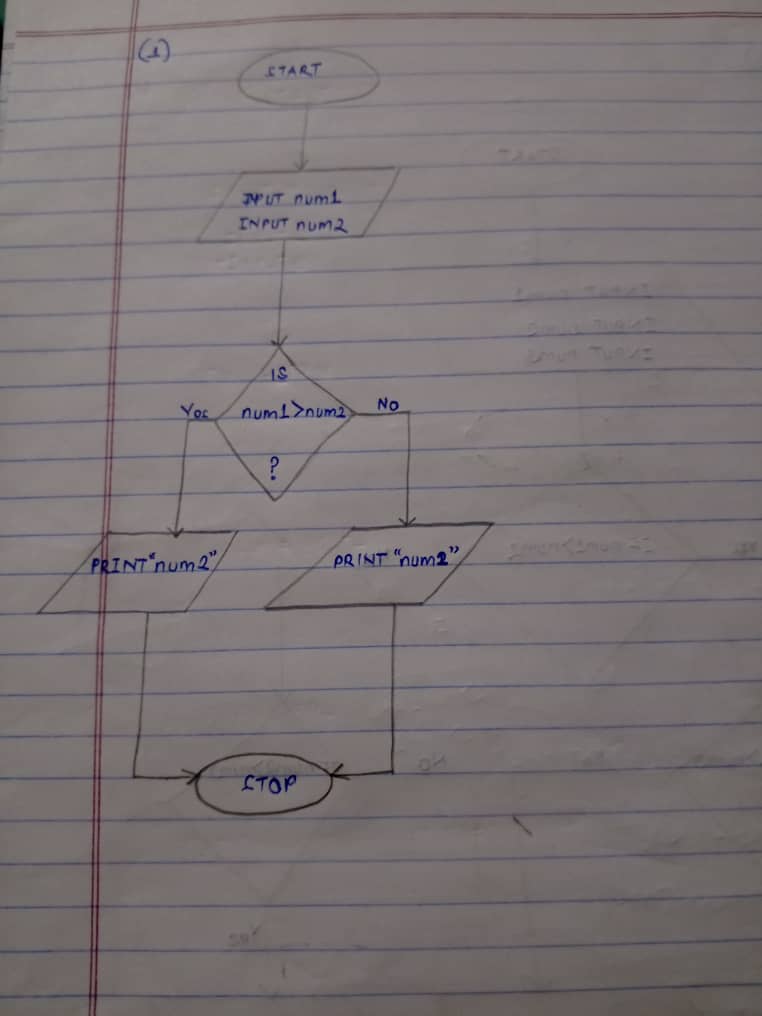 (1)
START
INPUT num1
INPUT num2
IS
Yes
num1>num2
No
?
PRINT "num2"
PRINT "num2"
STOP